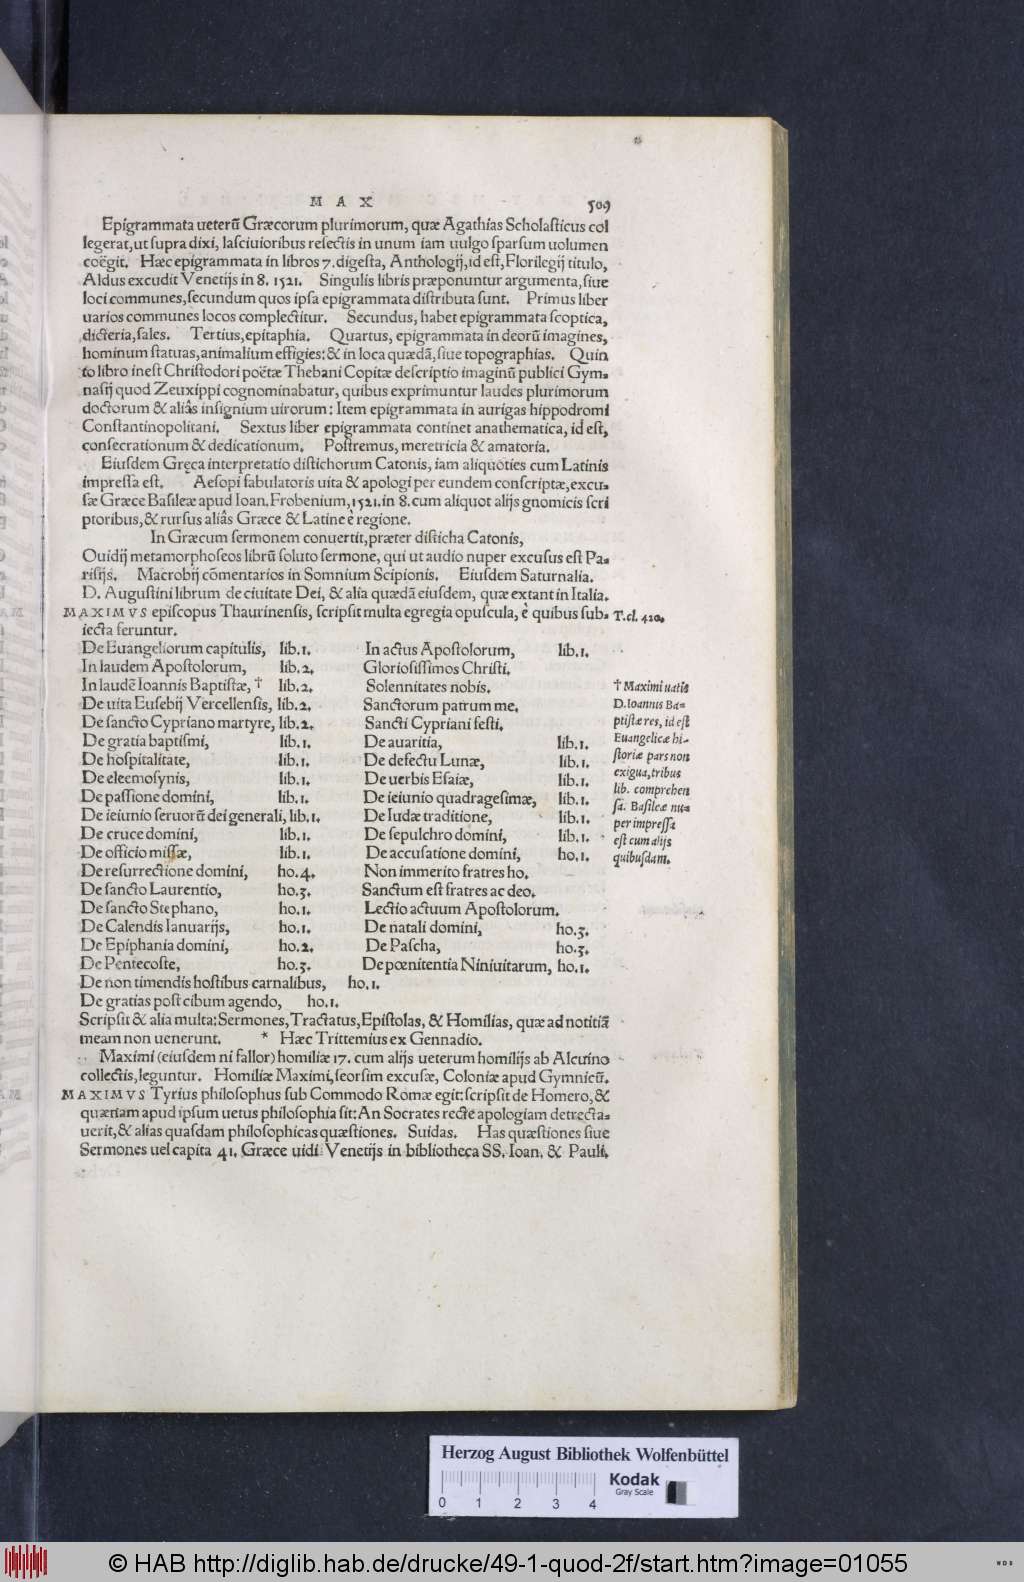 M A X 509
Epigrammata ueterũ Græcorum plurimorum, quæ Agathias Scholasticus col
legerat, ut supra dixi, lasciuioribus resectis in unum iam uulgo sparsum uolumen
coëgit. Hæc epigrammata in libros 7. digesta, Anthologij, id est, Florilegij titulo,
Aldus excudit Venetijs in 8. 1521. Singulis libris præponuntur argumenta, siue
loci communes, secundum quos ipsa epigrammata distributa sunt. Primus liber
uarios communes locos complectitur. Secundus, habet epigrammata scoptica,
dicteria, sales. Tertius, epitaphia. Quartus, epigrammata in deorũ imagines,
hominum statuas, animalium effigies: & in loca quædã, siue topographias. Quin
to libro inest Christodori poëtæ Thebani Copitæ descriptio imaginũ publici Gym-
nasij quod Zeuxippi cognominabatur, quibus exprimuntur laudes plurimorum
doctorum & aliâs insignium uirorum: Item epigrammata in aurigas hippodromi
Constantinopolitani. Sextus liber epigrammata continet anathematica, id est,
consecrationum & dedicationum. Postremus, meretricia & amatoria.
Eiusdem Gręca interpretatio distichorum Catonis, iam aliquoties cum Latinis
impressa est. Aesopi fabulatoris uita & apologi per eundem conscriptæ, excu-
sæ Græce Basileæ apud Ioan. Frobenium, 1521. in 8. cum aliquot alijs gnomicis scri
ptoribus, & rursus aliâs Græce & Latine è regione.
In Græcum sermonem conuertit, præter disticha Catonis,
Ouidij metamorphoseos librũ soluto sermone, qui ut audio nuper excusus est Pa-
risijs. Macrobij cõmentarios in Somnium Scipionis. Eiusdem Saturnalia.
D. Augustini librum de ciuitate Dei, & alia quædã eiusdem, quæ extant in Italia.
MAXIMVS episcopus Thaurinensis, scripsit multa egregia opuscula, è quibus sub- T.cl. 420.
iecta feruntur.
De Euangeliorum capitulis, lib.1. In actus Apostolorum, lib.1.
In laudem Apostolorum, lib.2. Gloriosissimos Christi.
In laudẽ Ioannis Baptistæ, † lib.2. Solennitates nobis.
De uita Eusebij Vercellensis, lib.2. Sanctorum patrum me.
De sancto Cypriano martyre, lib.2. Sancti Cypriani festi.
De gratia baptismi, lib.1. De auaritia, lib.1.
De hospitalitate, lib.1. De defectu Lunæ, lib.1.
De eleemosynis, lib.1. De uerbis Esaiæ, lib.1.
De passione domini, lib.1. De ieiunio quadragesimæ, lib.1.
De ieiunio seruorũ dei generali, lib.1. De Iudæ traditione, lib.1.
De cruce domini, lib.1. De sepulchro domini, lib.1.
De officio missæ, lib.1. De accusatione domini, ho.1.
De resurrectione domini, ho.4. Non immerito fratres ho.
De sancto Laurentio, ho.3. Sanctum est fratres ac deo.
De sancto Stephano, ho.1. Lectio actuum Apostolorum.
De Calendis Ianuarijs, ho.1. De natali domini, ho.3.
De Epiphania domini, ho.2. De Pascha, ho.3.
De Pentecoste, ho.3. De pœnitentia Niniuitarum, ho.1.
De non timendis hostibus carnalibus, ho.1.
De gratias post cibum agendo, ho.1.
Scripsit & alia multa: Sermones, Tractatus, Epistolas, & Homilias, quæ ad notitiã
meam non uenerunt. * Hæc Trittemius ex Gennadio.
Maximi (eiusdem ni fallor) homiliæ 17. cum alijs ueterum homilijs ab Alcuino
collectis, leguntur. Homiliæ Maximi, seorsim excusæ, Coloniæ apud Gymnicũ.
MAXIMVS Tyrius philosophus sub Commodo Romæ egit: scripsit de Homero, &
quænam apud ipsum uetus philosophia sit: An Socrates recte apologiam detrecta-
uerit, & alias quasdam philosophicas quæstiones. Suidas. Has quæstiones siue
Sermones uel capita 41. Græce uidi Venetijs in bibliotheca SS. Ioan. & Pauli.
† Maximi uatis
D. Ioannis Ba-
ptistæ res, id est
Euangelicæ hi-
storiæ pars non
exigua, tribus
lib. comprehen
sa. Basileæ nu-
per impressa
est cum alijs
quibusdam.
Herzog August Bibliothek Wolfenbüttel
Kodak
Gray Scale
0 1 2 3 4
© HAB http://diglib.hab.de/drucke/49-1-quod-2f/start.htm?image=01055
WDB